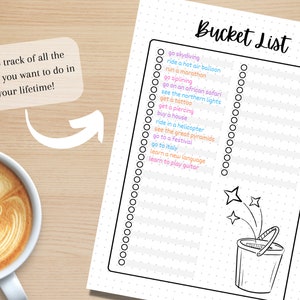 Bucket List
s track of all the
you want to do in
your lifetime!
go skydiving
ride a hot air balloon
run a marathon
go ziplining
go on an african safari
see the northern lights
get a tattoo
get a piercing
buy a house
ride in a helicopter
see the great pyramids
go to a festival
go to italy
learn a new language
learn to play guitar